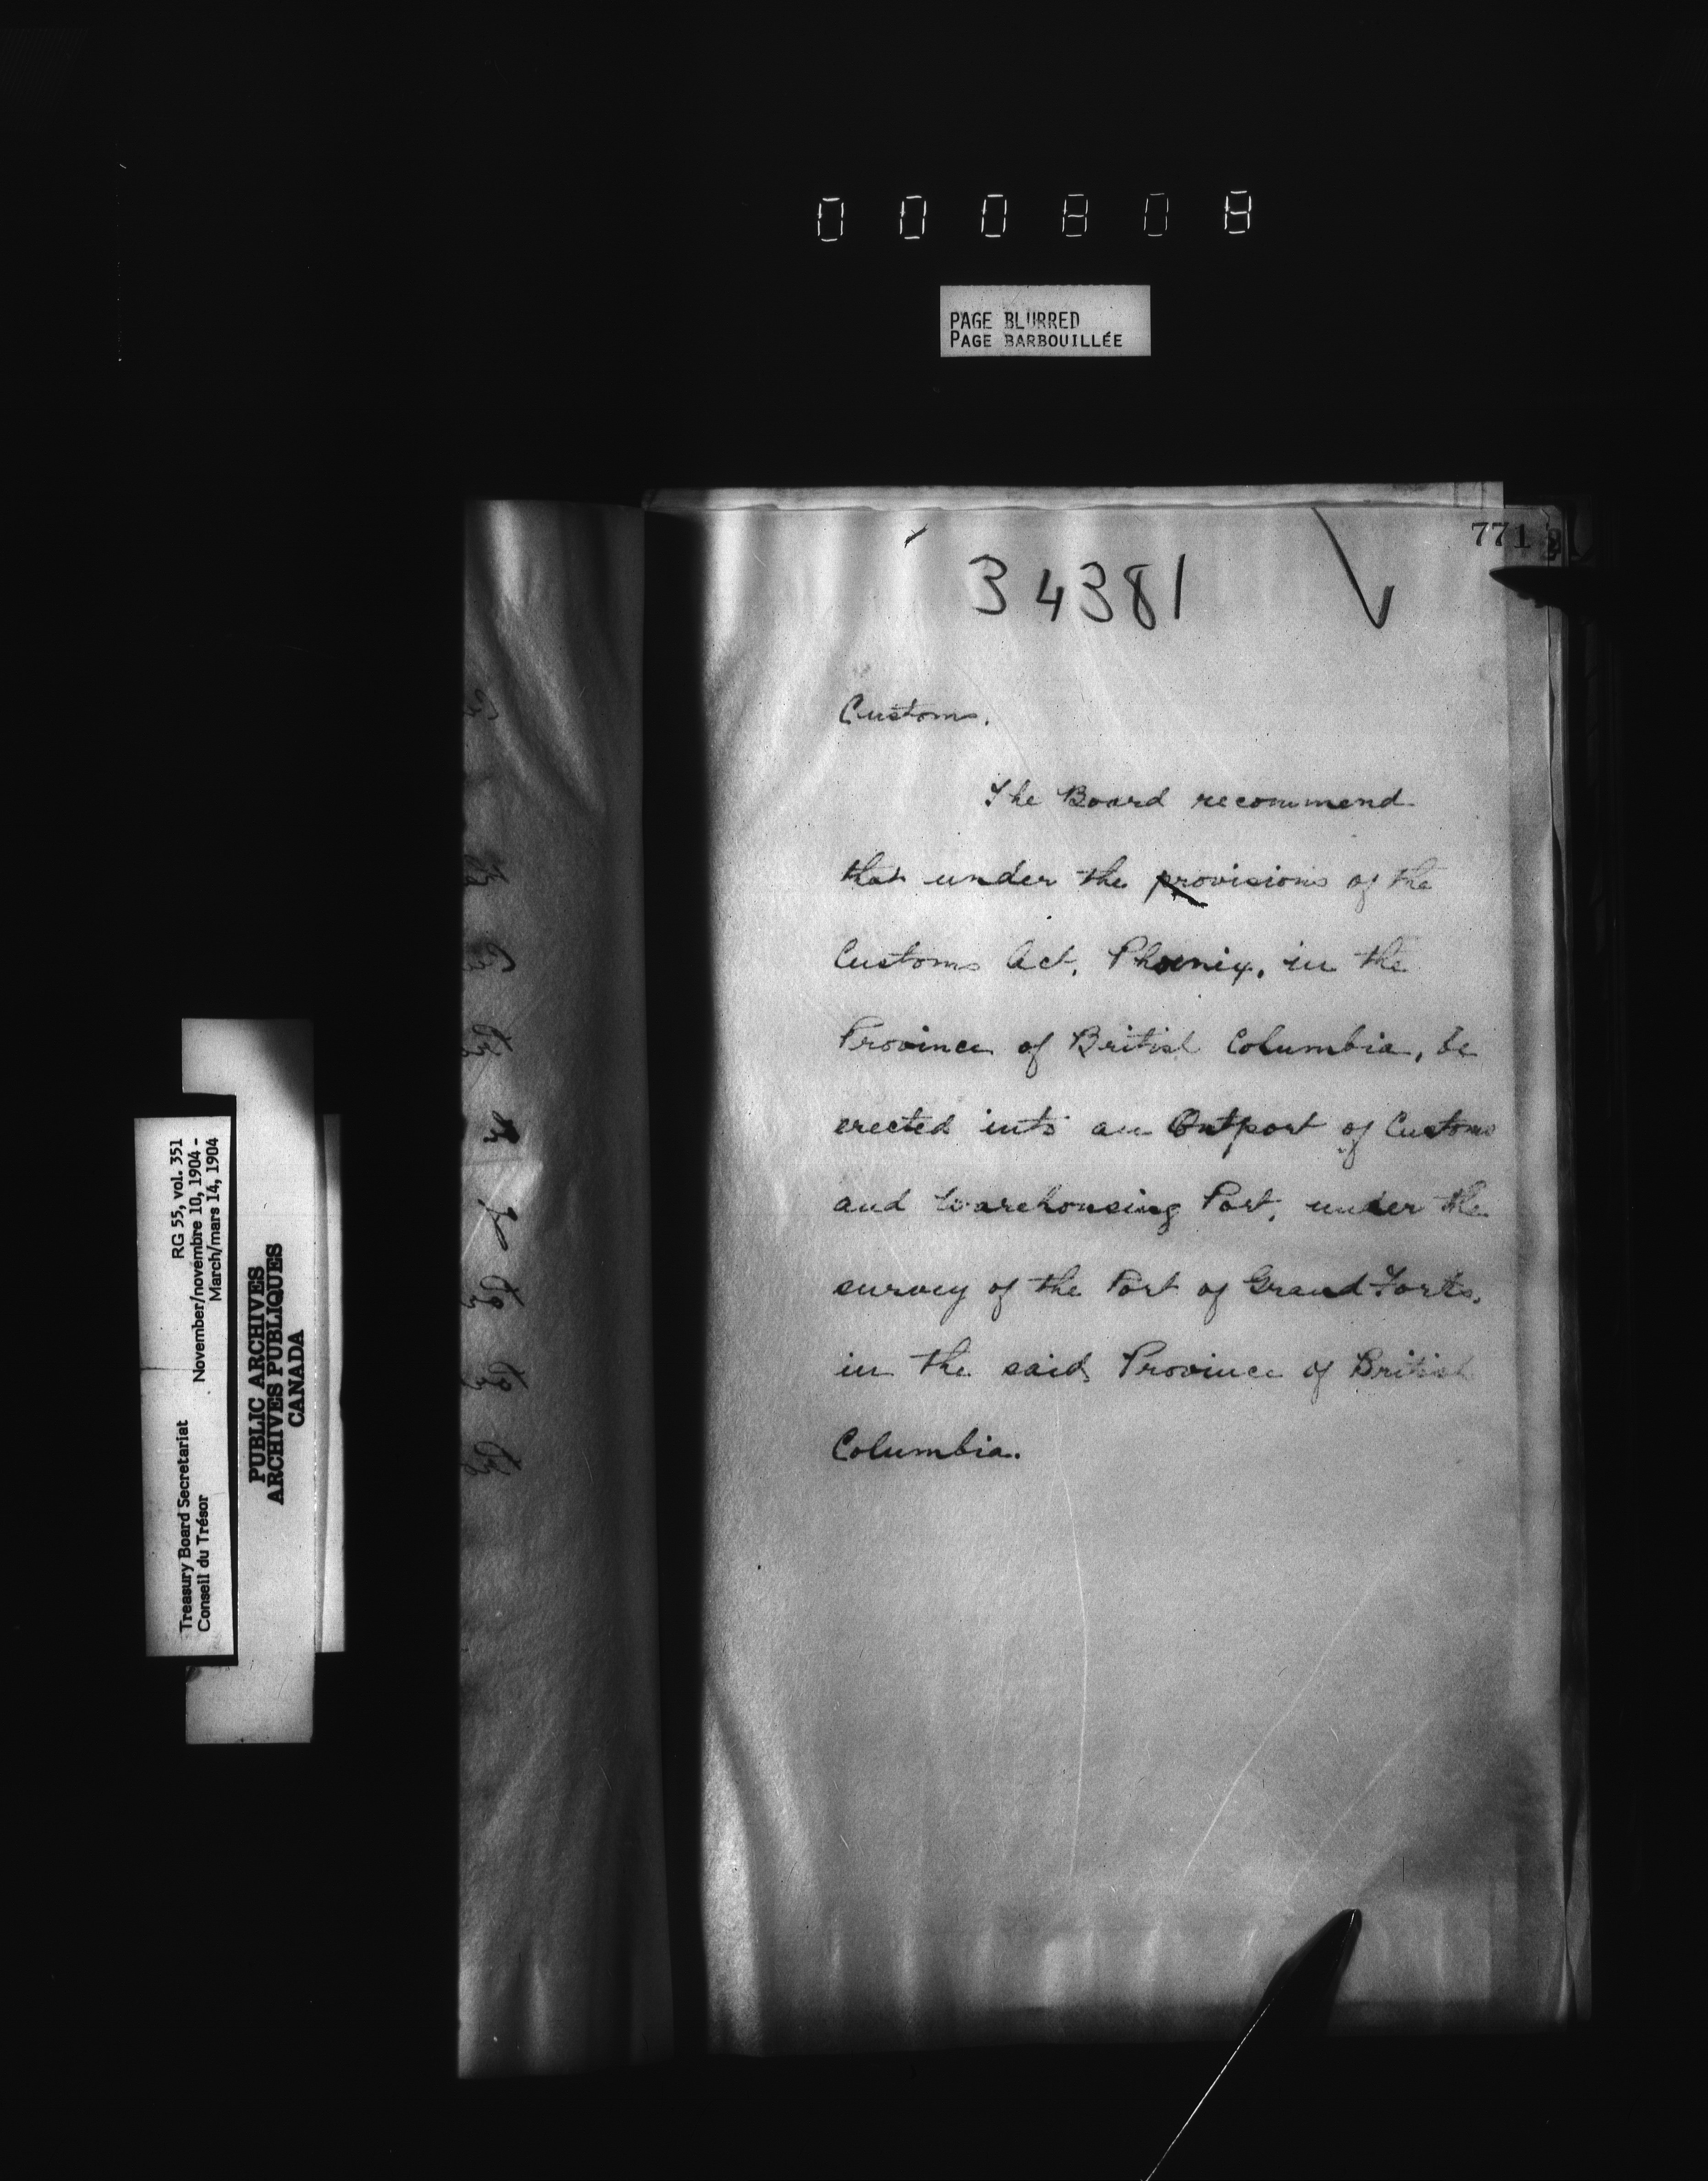 000808
PAGE BLURRED
PAGE BARBOUILLÉE
771
34381
Customs.
The Board recommend
that under the provisions of the
Customs Act, Phoenix, in the
Province of British Columbia, be
erected into an Outport of Customs
and Warehousing Port, under the
survey of the Port of Grand Forks,
in the said Province of British
Columbia.
Treasury Board Secretariat
Conseil du Trésor
RG 55, vol. 351
November/novembre 10, 1904 -
March/mars 14, 1904
PUBLIC ARCHIVES
ARCHIVES PUBLIQUES
CANADA